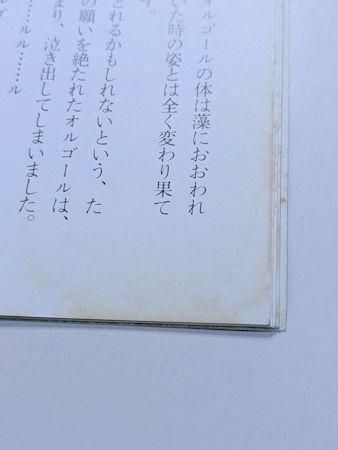 オルゴールの体は藻におおわれ
いた時の姿とは全く変わり果て
す。
とれるかもしれないという、た
の願いを絶たれたオルゴールは、
まり、泣き出してしまいました。
…ルル……ル